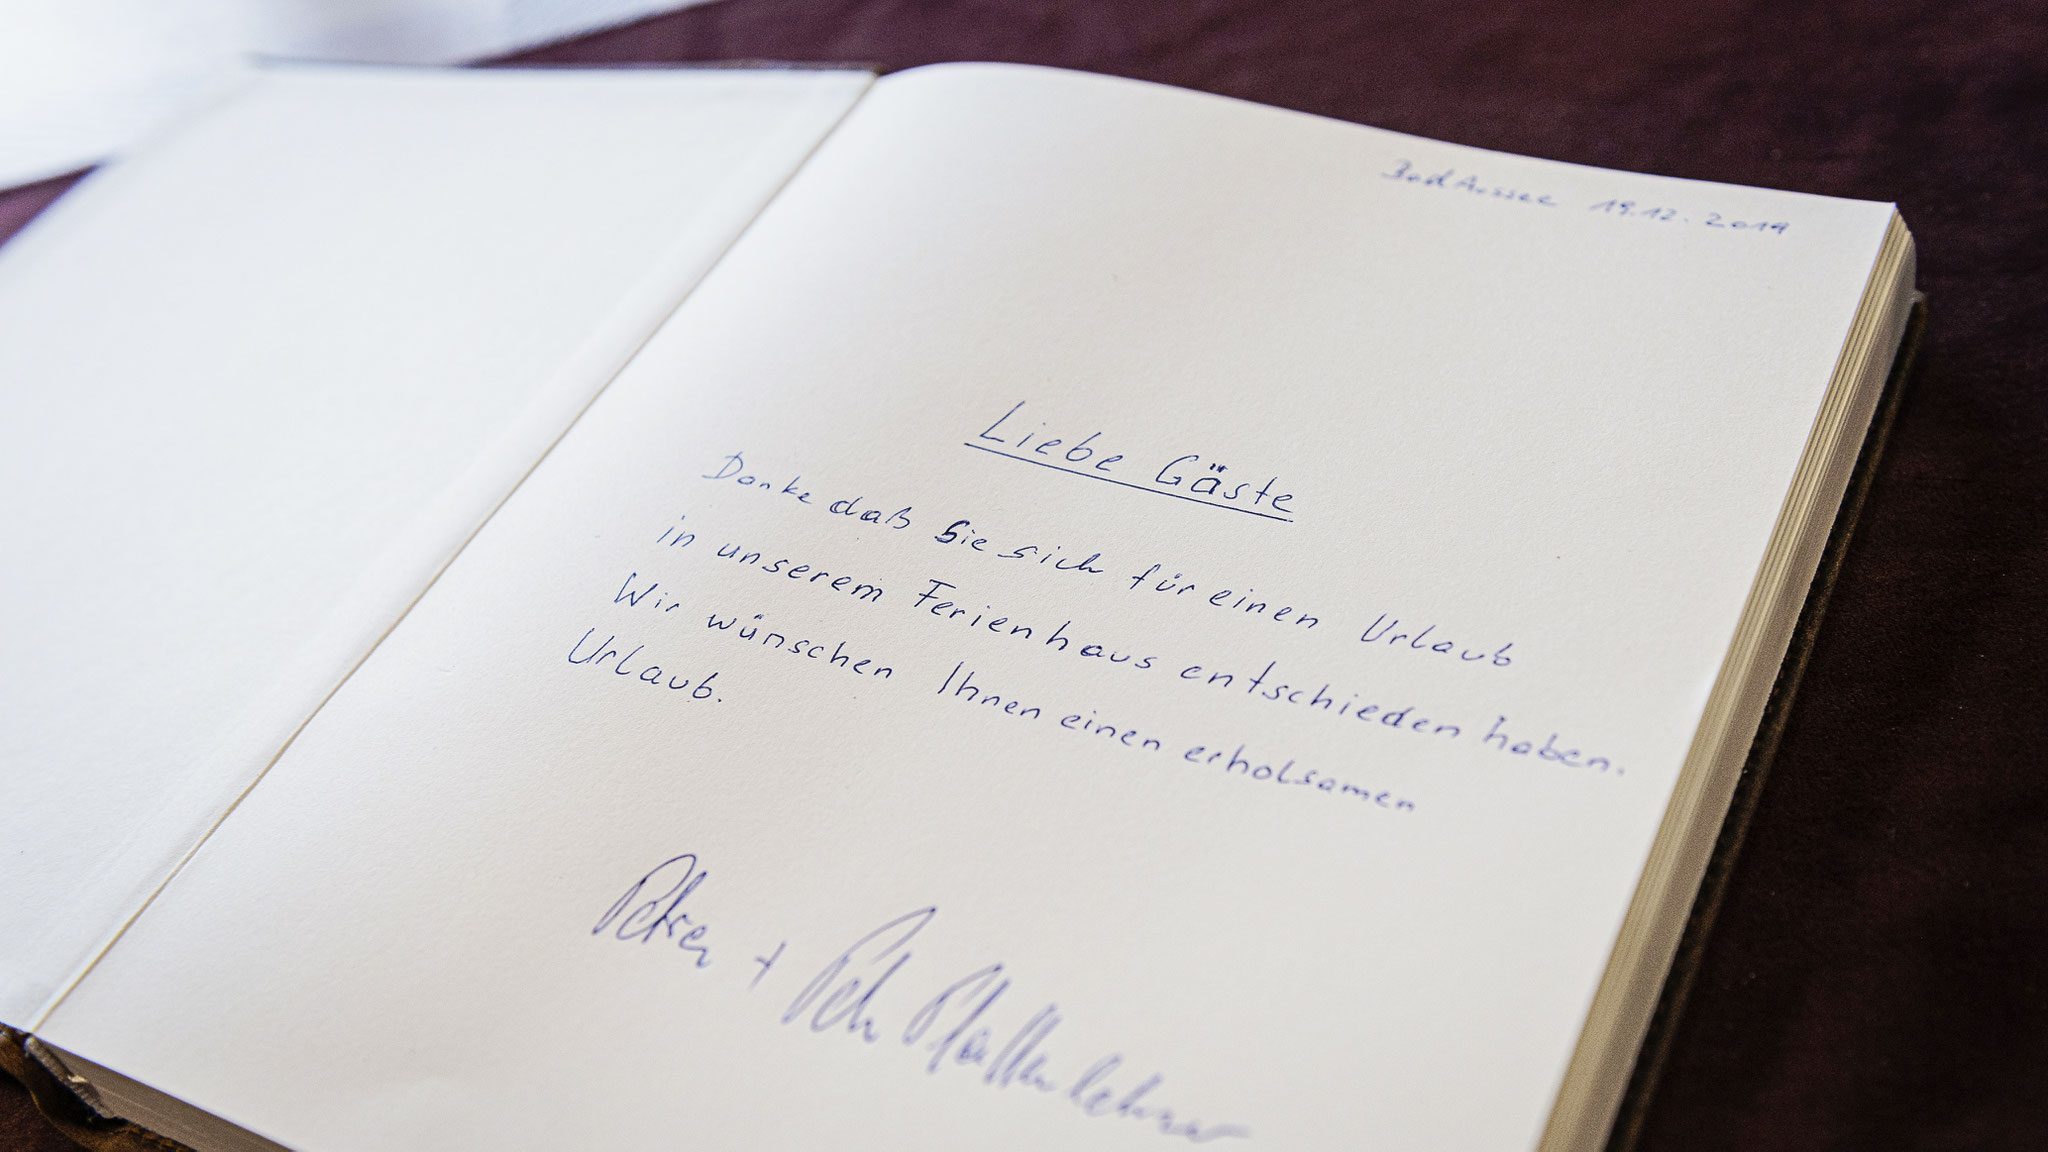 Bad Aussee 19.12.2019
Liebe Gäste
Danke daß Sie sich für einen Urlaub
in unserem Ferienhaus entschieden haben.
Wir wünschen Ihnen einen erholsamen
Urlaub.
+